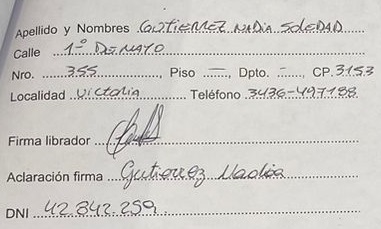 Apellido y Nombres GUTIERREZ NADIA SOLEDAD
Calle 1º DE MAYO
Nro. 355, Piso —, Dpto. —, CP. 3153
Localidad Victoria Teléfono 3436-497188
Firma librador
Aclaración firma Gutierrez Nadia
DNI 42.842.259